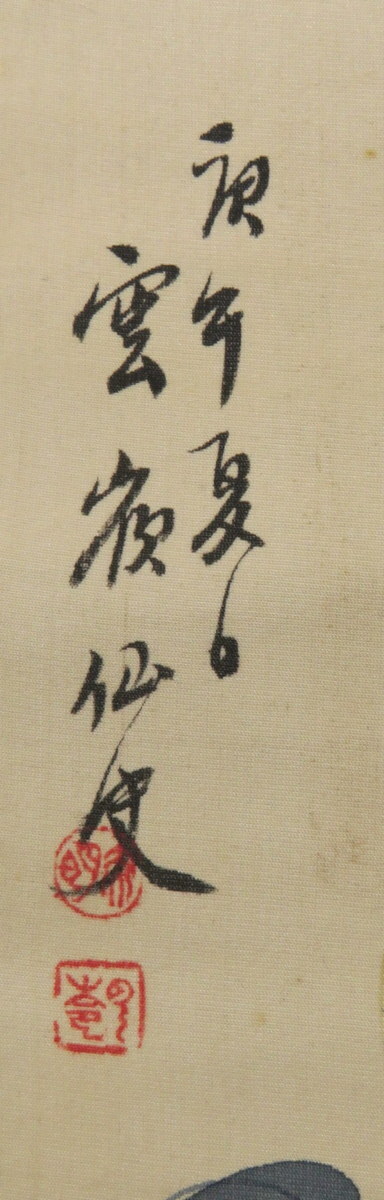 庚午夏日
雲嶺仙史